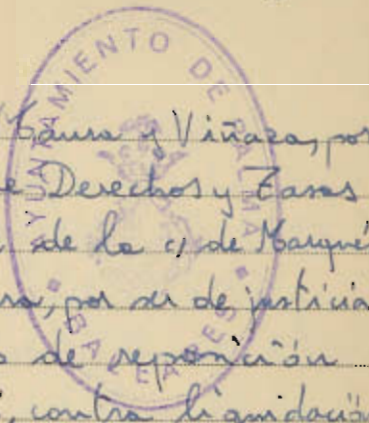 AYUNTAMIENTO DE PALMA
BALEARES
Gaura y Viñaza, por
e Derechos y Tasas
de la c/ de Marqués
ra, por ser de justicia
de reposición
contra liquidación